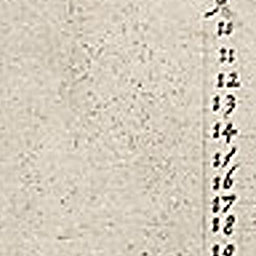 10
11
12
13
14
15
16
17
18
19